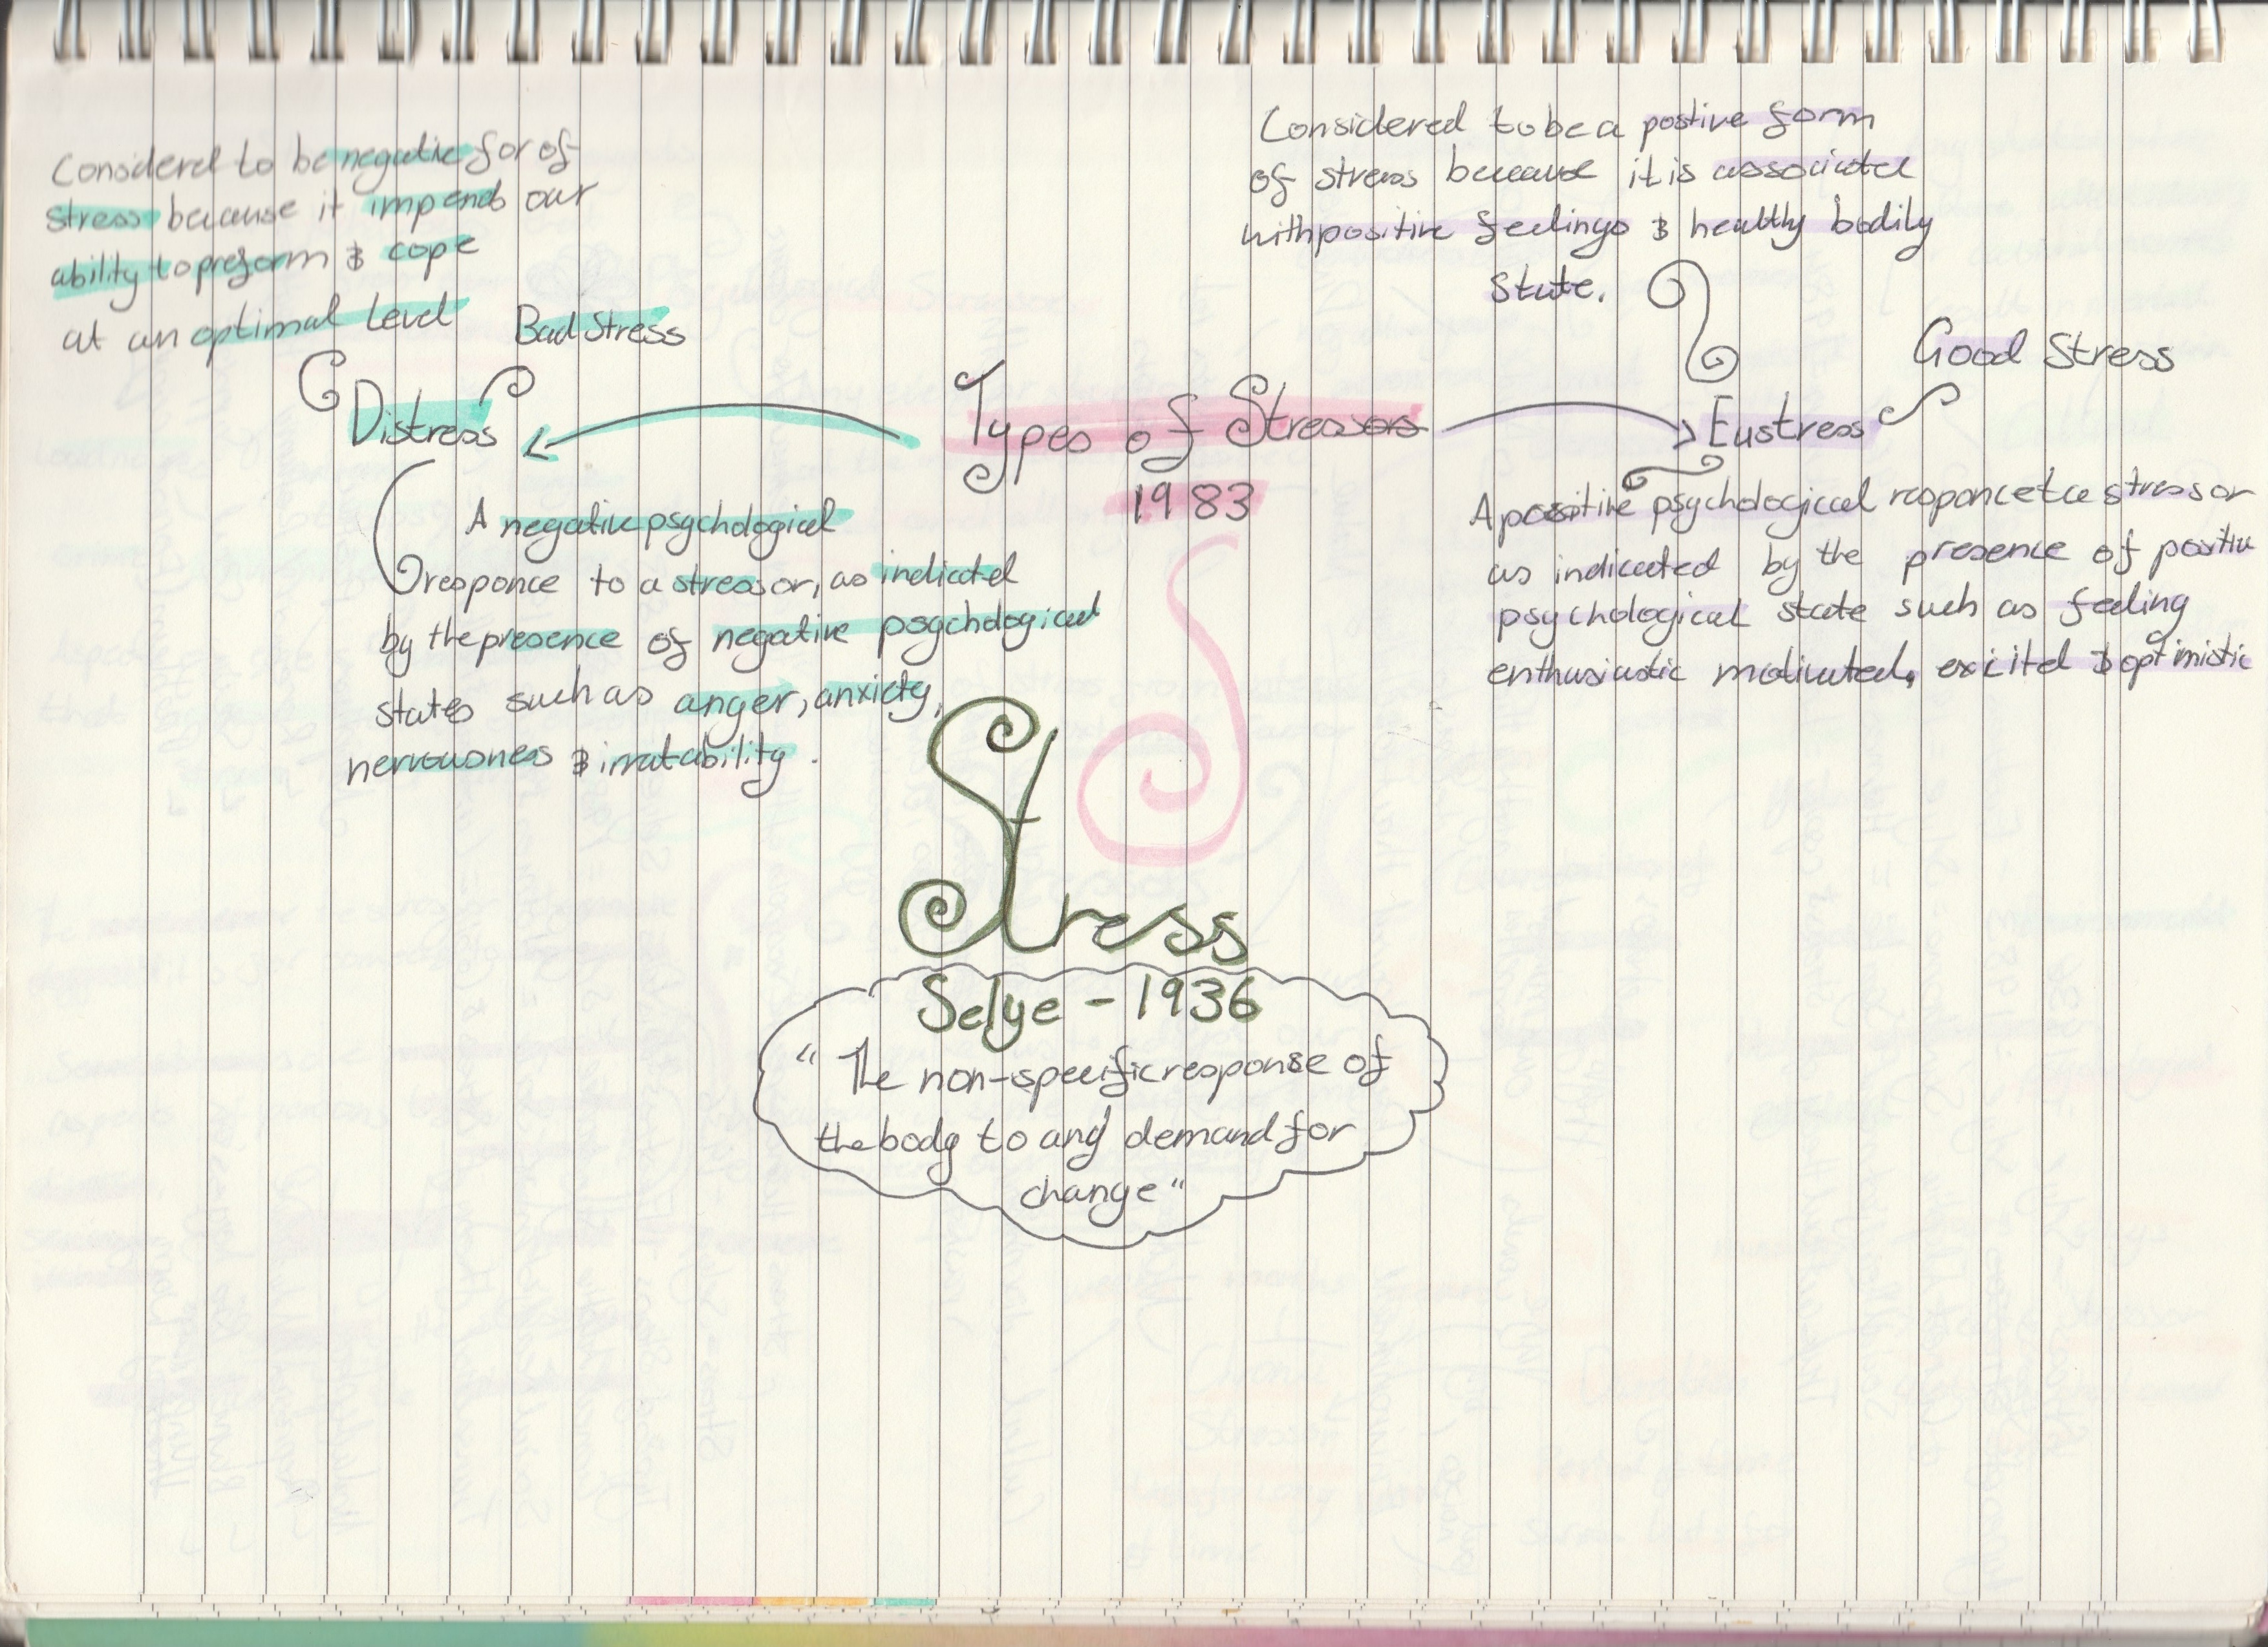 Considered to be negative for of
stress because it impends our
ability to preform & cope
at an optimal level
Bad Stress
Distress
A negative psychological
responce to a stressor, as indicated
by the presence of negative psychological
states such as anger, anxiety,
nervousness & irratability.
Types of Stressors
1983
Considered to be a postive form
of stress because it is associated
with positive feelings & healthy bodily
state.
Good Stress
Eustress
A positive psychological responce to a stressor
as indicated by the presence of positive
psychological state such as feeling
enthusiastic motivated, excited & optimistic
Stress
Selye - 1936
"The non-specific response of
the body to any demand for
change"